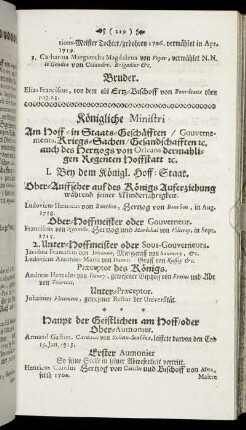 ( 219 )
rions-Meister Tochter/gebohren 1706. vermählet in Apr.
1719.
3. Catharina Margaretha Magdalena von Pajot, vermählet N.N.
le Gendre von Colandre, Brigadier &c.
Bruder.
Elias Franciscus, von dem als Ertz-Bischoff von Bourdeaux oben
pag. 21.
Königliche Ministri
Am Hoff- in Staats-Geschäfften / Gouverne-
ments, Kriegs-Sachen / Gesandschafften &c.
auch des Hertzogs von Orleans dermahli-
gen Regenten Hoffstatt &c.
I. Bey dem Königl. Hoff-Staat.
Ober-Auffseher auf des Königs Auferziehung
während seiner Minderjährigkeit.
Ludovicus Henricus von Bourbon, Hertzog von Bourbon, in Aug.
1718.
Ober-Hoffmeister oder Gouverneur.
Franciscus von Neufville, Hertzog und Mareschal von Villeroy, in Sept.
1715.
2. Unter-Hoffmeister oder Sous-Gouverneurs.
Jacobus Franciscus von Marggraff von &c.
Ludovicus Antonius Maria von Graff von Ruffey &c.
Præceptor des Königs.
Andreas Hercules von Fleury, gewesener Bischoff von Frejus und Abt
von Tournus.
Unter-Præceptor.
Johannes gewesener Rector der Universität.
Haupt der Geistlichen am Hoff/oder
Ober-Aumonier.
Armand Gaston, Cardinal von Rohan-Soubise, leistete darvon den Eyd
1713.
Erster Aumonier
So seine Stelle in seiner Abwesenheit vertritt.
Henricus Carolus Hertzog von Coislin und Bischoff von Metz,
seith 1700.
Maitre